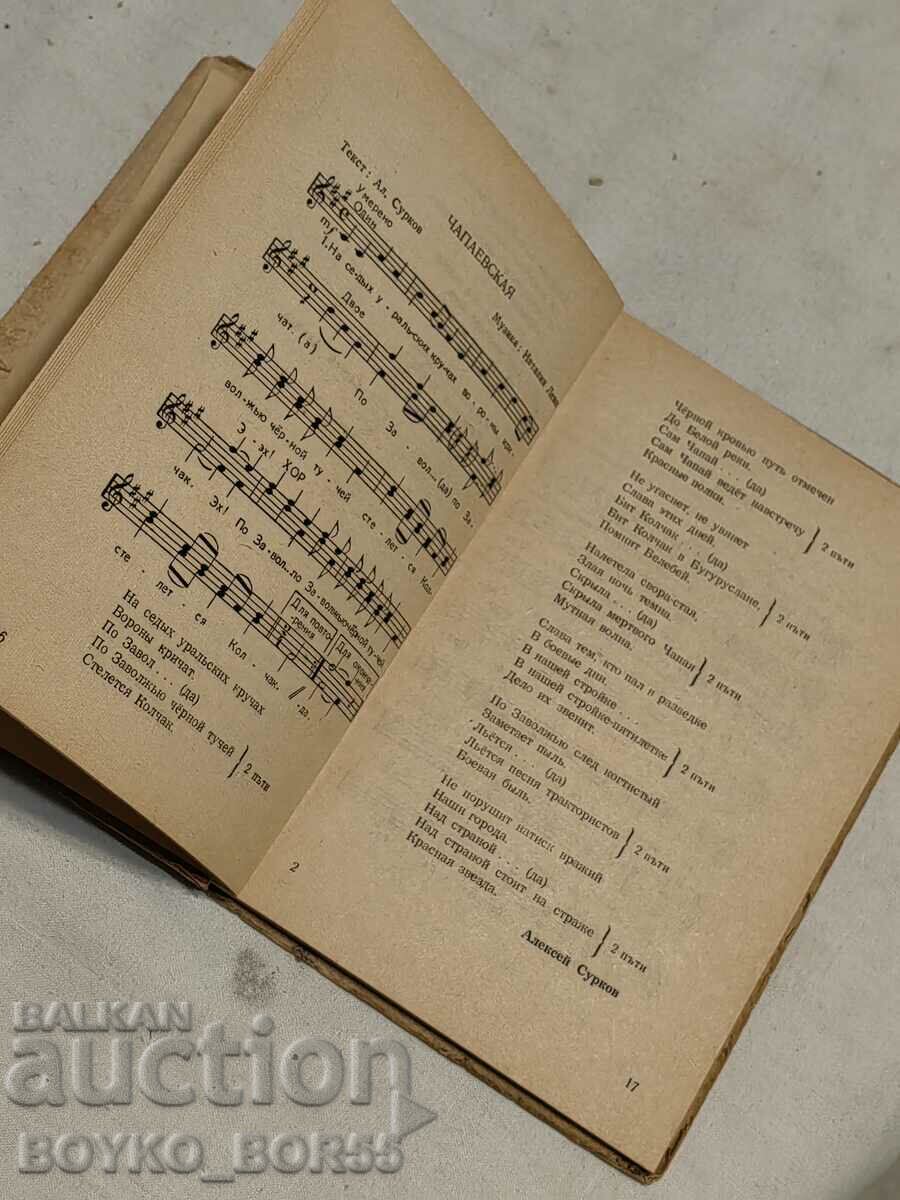 ЧАПАЕВСКАЯ
Текст: Ал. Сурков
Музика: Наталия
Умерено
Один
mf
1. На се-дых у - ральских кру-чах во - ро - ны кри -
Двое
чат. (а) По За - вол..(да) по За.
вол-жью чёр-ной ту - чей сте - лет - ся Кол-
Э - эх! ХОР
чак. Эх! По За-вол..по За-волжью чёрной ту-чей
Для повто-
рения
сте - лет - ся Кол - чак.
да.
На седых уральских кручах
Вороны кричат.
По Завол . . . (да)
По Заволжью чёрной тучей
Стелется Колчак.
2 пъти
6
Чёрной кровью путь отмечен
До Белой реки.
Сам Чапай . . (да)
Сам Чапай ведёт навстречу
Красные полки.
2 пъти
Не угаснет, не увянет
Слава этих дней.
Бит Колчак . . (да)
Бит Колчак в Бугуруслане,
Помнит Белебей.
2 пъти
Налетела свора-стая,
Злая ночь темна.
Скрыла . . . (да)
Скрыла мертвого Чапая
Мутная волна.
2 пъти
Слава тем, кто пал в разведке
В боевые дни.
В нашей стройке . . .
В нашей стройке-пятилетке
Дело их звенит.
2 пъти
По Заволжью след когтистый
Заметает пыль.
Льётся . . . (да)
Льётся песня трактористов
Боевая быль.
2 пъти
Не порушит натиск вражий
Наши города.
Над страной . . . (да)
Над страной стоит на страже
Красная звезда.
2 пъти
Алексей Сурков
2
17
BALKAN
auction
BOYKO_BOR55